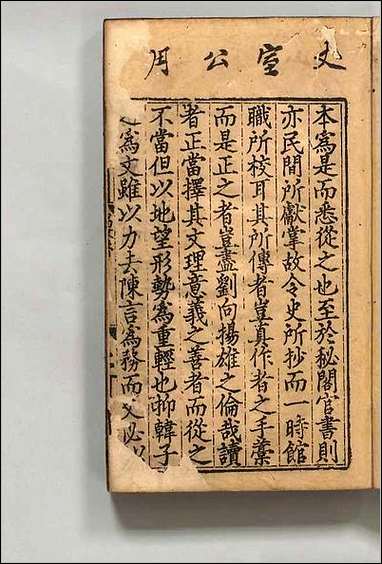 室公
本為是而悉從之也至於秘閣官書則
亦民間所獻掌故令史所抄而一時館
職所校耳其所傳者豈真作者之手藁
而是正之者豈盡劉向揚雄之倫哉讀
者正當擇其文理意義之善者而從之
不當但以地望形勢為重輕也抑韓子
為文雖以力去陳言為務而又必